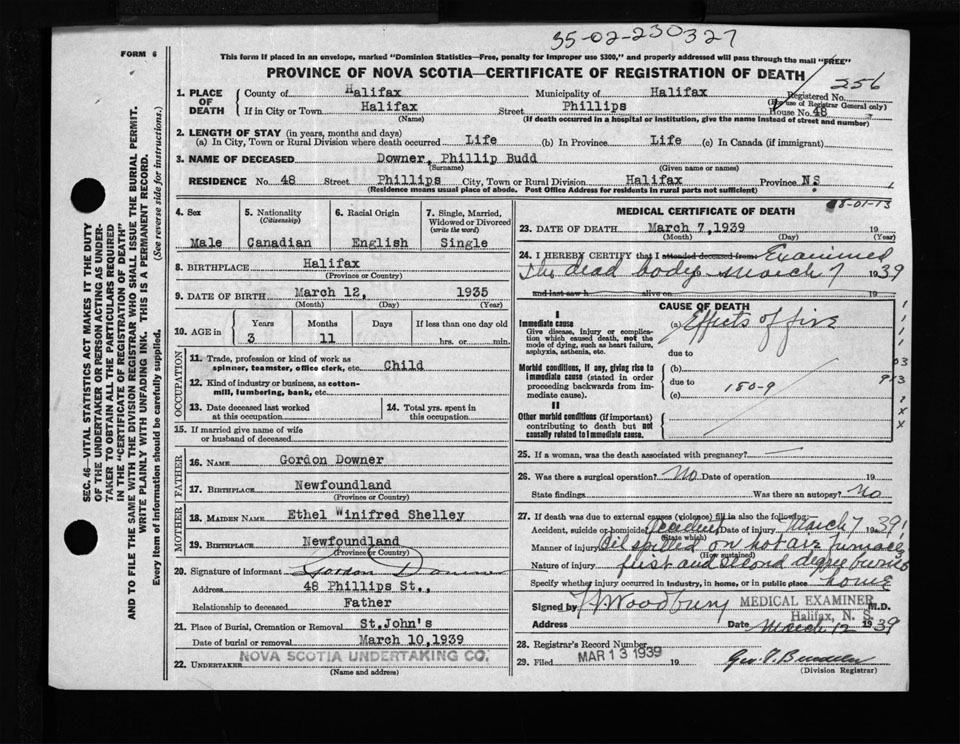 35-02-230327
FORM 6
This form if placed in an envelope, marked "Dominion Statistics—Free, penalty for improper use $300," and properly addressed will pass through the mail "FREE"
PROVINCE OF NOVA SCOTIA—CERTIFICATE OF REGISTRATION OF DEATH
256
SEC. 46—VITAL STATISTICS ACT MAKES IT THE DUTY
OF THE UNDERTAKER OR PERSON ACTING AS UNDER-
TAKER TO OBTAIN ALL THE PARTICULARS REQUIRED
IN THE "CERTIFICATE OF REGISTRATION OF DEATH"
AND TO FILE THE SAME WITH THE DIVISION REGISTRAR WHO SHALL ISSUE THE BURIAL PERMIT.
WRITE PLAINLY WITH UNFADING INK. THIS IS A PERMANENT RECORD.
Every item of information should be carefully supplied. (See reverse side for instructions.)
1. PLACE OF DEATH
County of Halifax Municipality of Halifax Registered No.
(For use of Registrar General only)
If in City or Town Halifax Street Phillips House No. 48
(Name) (If death occurred in a hospital or institution, give the name instead of street and number)
2. LENGTH OF STAY (in years, months and days)
(a) In City, Town or Rural Division where death occurred Life (b) In Province Life (c) In Canada (if immigrant)
3. NAME OF DECEASED Downer, Phillip Budd
(Surname) (Given name or names)
RESIDENCE No. 48 Street Phillips City, Town or Rural Division Halifax Province NS
(Residence means usual place of abode. Post Office Address for residents in rural parts not sufficient)
4. Sex Male
5. Nationality (Citizenship) Canadian
6. Racial Origin English
7. Single, Married, Widowed or Divorced (write the word) Single
8. BIRTHPLACE Halifax
(Province or Country)
9. DATE OF BIRTH March 12, 1935
(Month) (Day) (Year)
10. AGE in Years 3 Months 11 Days If less than one day old hrs. or min.
OCCUPATION
11. Trade, profession or kind of work as
spinner, teamster, office clerk, etc. Child
12. Kind of industry or business, as cotton-
mill, lumbering, bank, etc.
13. Date deceased last worked at this occupation
14. Total yrs. spent in this occupation
15. If married give name of wife
or husband of deceased
FATHER
16. NAME Gordon Downer
17. BIRTHPLACE Newfoundland
MOTHER
18. MAIDEN NAME Ethel Winifred Shelley
19. BIRTHPLACE Newfoundland
(Province or Country)
20. Signature of informant Gordon Downer
Address 48 Phillips St.,
Relationship to deceased Father
21. Place of Burial, Cremation or Removal St.John's
Date of burial or removal March 10,1939
22. UNDERTAKER NOVA SCOTIA UNDERTAKING CO.
(Name and address)
8-01-13
MEDICAL CERTIFICATE OF DEATH
23. DATE OF DEATH March 7,1939 19
(Month) (Day) (Year)
24. I HEREBY CERTIFY that I attended deceased from Examined
the dead body March 7 1939
and last saw h alive on 19
CAUSE OF DEATH
I
Immediate cause (a) Effects of fire
Give disease, injury or complica-
tion which caused death, not the
mode of dying, such as heart failure,
asphyxia, asthenia, etc.
due to
Morbid conditions, if any, giving rise to
immediate cause (stated in order
proceeding backwards from im-
mediate cause).
(b)
due to 180-9
(c)
II
Other morbid conditions (if important)
contributing to death but not
causally related to immediate cause.
03
913
xxx
25. If a woman, was the death associated with pregnancy? —
26. Was there a surgical operation? No Date of operation 19
State findings Was there an autopsy? No
27. If death was due to external causes (violence) fill in also the following:
Accident, suicide or homicide? Accident Date of injury March 7 1939
(State which)
Manner of injury Oil spilled on hot air furnace
(How sustained)
Nature of injury first and second degree burns
Specify whether injury occurred in industry, in home, or in public place home
Signed by Woodbury MEDICAL EXAMINER M.D.
Halifax, N. S.
Address Date March 12 1939
28. Registrar's Record Number
29. Filed MAR 13 1939 19
(Division Registrar)